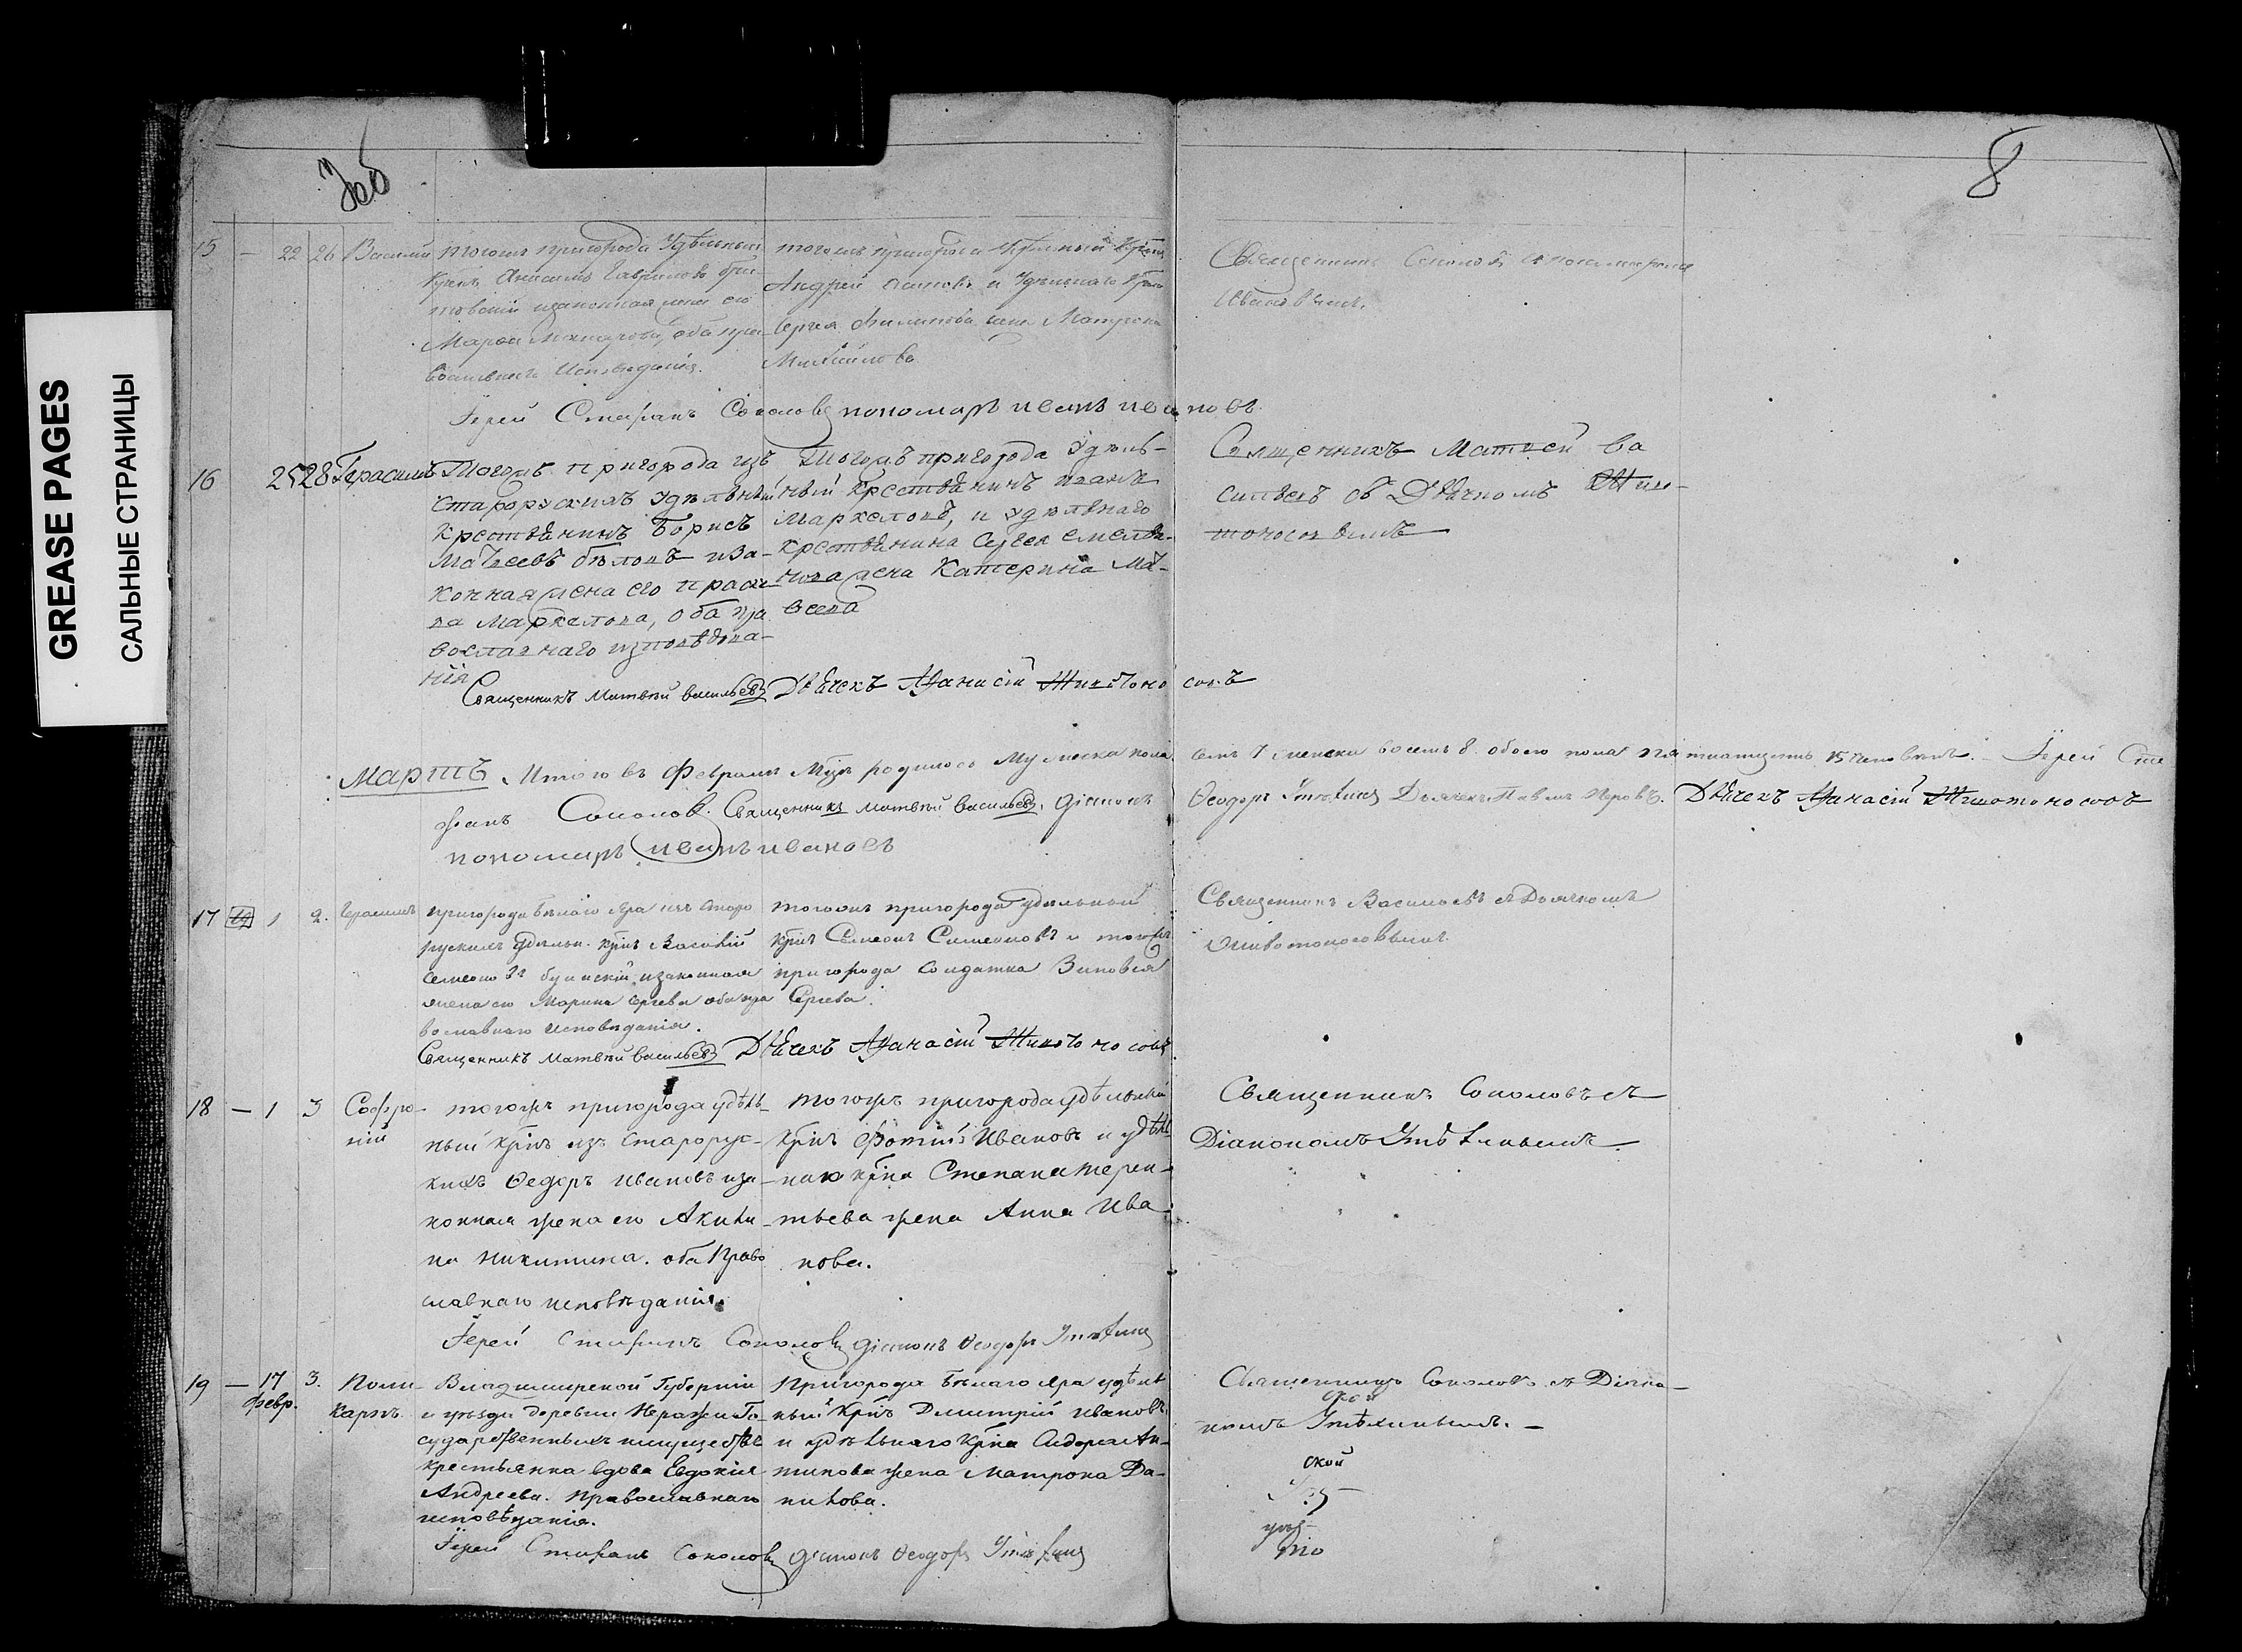 GREASE PAGES
САЛЬНЫЕ СТРАНИЦЫ
8
15 — 22 26 Василій
тогожъ пригорода Удѣльный
Крест. Анисимъ Гавриловъ
изаконная жена его
Марфа оба пра-
вославнаго Исповѣданія.
тогожъ пригорода Удѣльный
Андрей и Удѣльнаго
Сергея Филипова жена Матрена
Михайлова
Священникъ Соколовъ
Ивановымъ.
Іерей Стефанъ Соколовъ пономарь иванъ ивановъ.
16 25 28 Герасимъ
Тогожъ пригорода изъ
старорускихъ Удѣльный
Крестьянинъ Борисъ
Матвеевъ изa-
конная жена его праско-
ва Маркелова, оба пра
вославнаго изповѣдова-
нія
Тогожъ пригорода Удѣль-
ный Крестьянинъ иванъ
Маркеловъ, и Удѣльнаго
Крестьянина Сергея Емелья-
нова жена Катерина Ма-
веева
Священникъ Матвей ва
сильевъ съ Дьячкомъ Жив-
тоносовымъ
Священникъ Матвей васильевъ Дьячекъ Афанасій Животоносовъ
Мартъ Итого въ Февралѣ Мцѣ родилось Мужеска пола семь 7 женска восемь 8. обоего пола пятнатцать 15 человѣкъ. – Іерей Сте
фанъ Соколов. Священникъ Матвей Васильевъ. Діаконъ Ѳеодоръ Дьячекъ Павелъ Перовъ. Дьячекъ Афанасій Животоносовъ
пономарь иванъ ивановъ
17 1 2. Герасимъ
пригорода Бѣлаго Яра изъ старо
рускихъ Удѣльн. крѣн. Василій
Семеновъ изаконная
жена его Марина Сергева оба пра
вославнаго исповѣданія.
тогожъ пригорода удѣльный
крѣн. Семенъ Симеоновъ и тогожъ
пригорода солдатка Зиновея
Сергева.
Священникъ Васильевъ съ Дьячкомъ
Животоносовымъ.
Священникъ Матвей васильевъ Дьячекъ Афанасій Животоносовъ
18 — 1 3 Софро-
ній
тогожъ пригорода удѣль-
ный крнъ изъ старорус-
кихъ Ѳедоръ Ивановъ иза-
конная жена его Акили-
на Никитина. оба Право
славнаго исповѣданія.
тогожъ пригорода удѣльный
крнъ Фотій Ивановъ и удѣль-
наго крна Степана Терен-
тьева жена Анна Ива-
нова.
Священникъ Соколовъ съ
Діакономъ
Іерей Стефанъ Соколовъ діаконъ Ѳеодоръ
19 — 17 3. Поли-
Февр. карпъ
Владимирской Губерніи
и уѣзда деревни Го-
сударственныхъ имуществъ
крестьянка вдова Евдокія
Андреева. православнаго
исповѣданія.
Пригорода Бѣлаго Яра удѣль
ный крнъ Дмитрій Ивановъ
и удѣльнаго крна Сидора Ан-
типова жена Матрона Да-
нилова.
Священникъ Соколовъ съ Діако-
номъ
ской
то
Іерей Стефанъ Соколовъ діаконъ Ѳеодоръ